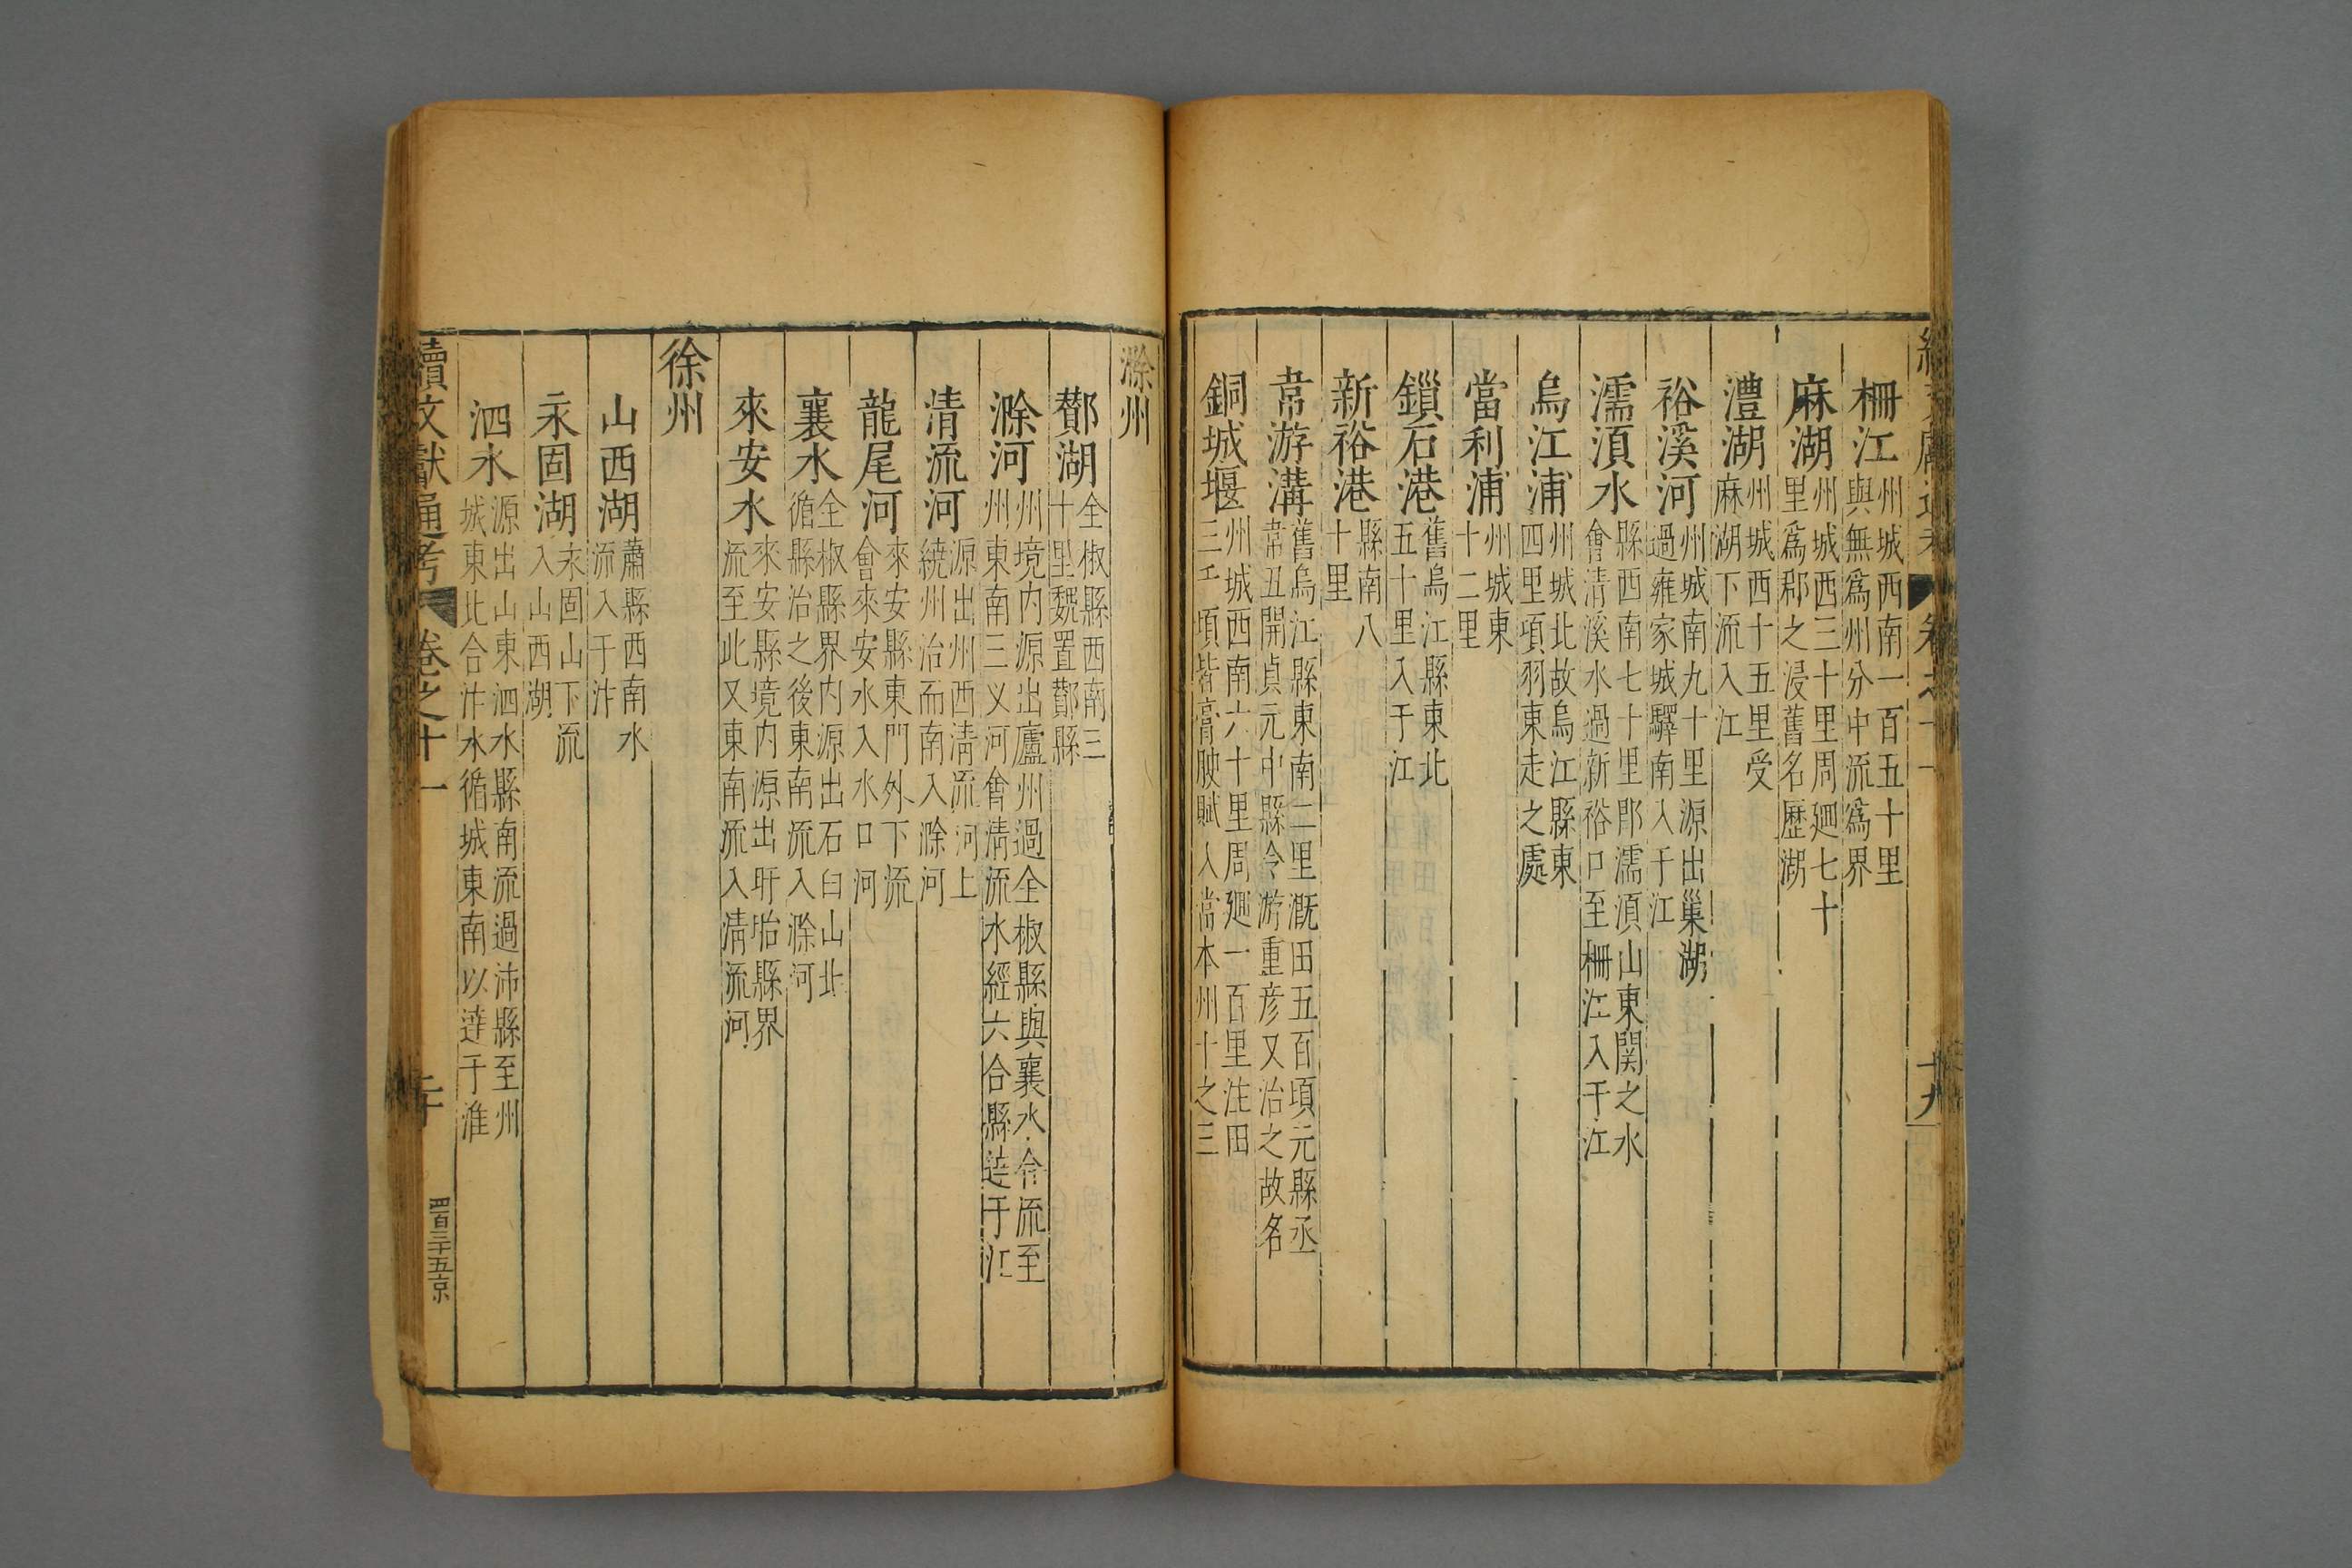 柵江州城西南一百五十里與無爲州分中流爲界
麻湖州城西三十里周廻七十里爲郡之浸舊名歷湖
澧湖州城西十五里受麻湖下流入江
裕溪河州城南九十里源出巢湖過雍家城驛南入于江
濡湏水縣西南七十里郎濡湏山東関之水會清溪水過新裕口至柵江入于江
烏江浦州城北故烏江縣東四里項羽東走之處
當利浦州城東十二里
鎻石港舊烏江縣東北五十里入于江
新裕港縣南八十里
韋游溝舊烏江縣東南二里溉田五百頃元縣丞韋丑開貞元中縣令游重彦又治之故名
銅城堰州城西南六十里周廻一百里注田三千頃皆膏腴賦入當本州十之三
滁州
酇湖全椒縣西南三十里魏置酇縣
滁河州境内源出廬州過全椒縣與襄水合流至州東南三义河會清流水經六合縣逹于江
清流河源出州西清流河上繞州治而南入滁河
龍尾河來安縣東門外下流會來安水入水口河
襄水全椒縣界内源出石臼山北循縣治之後東南流入滁河
來安水來安縣境内源出盱眙縣界流至此又東南流入清流河
徐州
山西湖蕭縣西南水流入于汴
永固湖永固山下流入山西湖
泗水源出山東泗水縣南流過沛縣至州城東北合汴水循城東南以逹于淮
續文獻通考 卷之十一 二十
四百三十五京